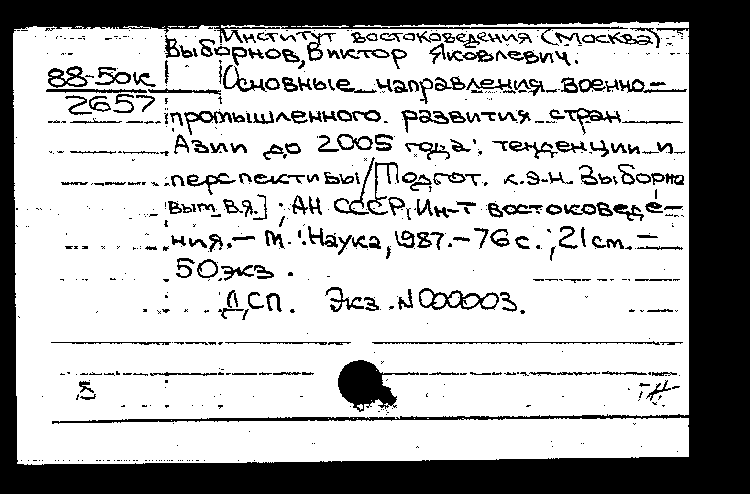 Институт востоковедения (Москва)
Выборнов, Виктор Яковлевич.
88-5ок
2657
Основные направления военно-
промышленного развития стран
Азии до 2005 года: тенденции и
перспективы / [Подгот. к.э.н. Выборно
вым В.Я.]; АН СССР, Ин-т востоковеде-
ния. - М.: Наука, 1987. - 76 с.; 21 см. -
50 экз.
ДСП. Экз. N 000003.